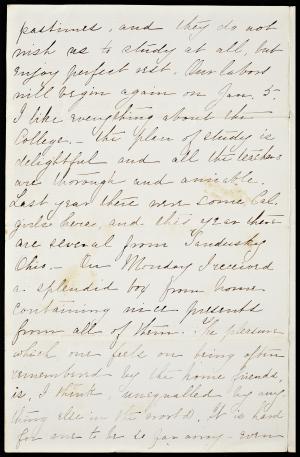 pastimes, and they do not
wish us to study at all, but
enjoy perfect rest. Our labors
will begin again on Jan. 5.
I like everything about the
College. – the plan of study is
delightful and all the teachers
are thorough and amiable.
Last year there were some Cal.
girls here, and this year there
are several from Sandusky
Ohio. – On Monday I received
a splendid box from home
containing nice presents
from all of them. The pleasure
which one feels on being often
remembered by the home friends,
is, I think, unequalled by any
thing else in the world. It is hard
for me to be so far away – even